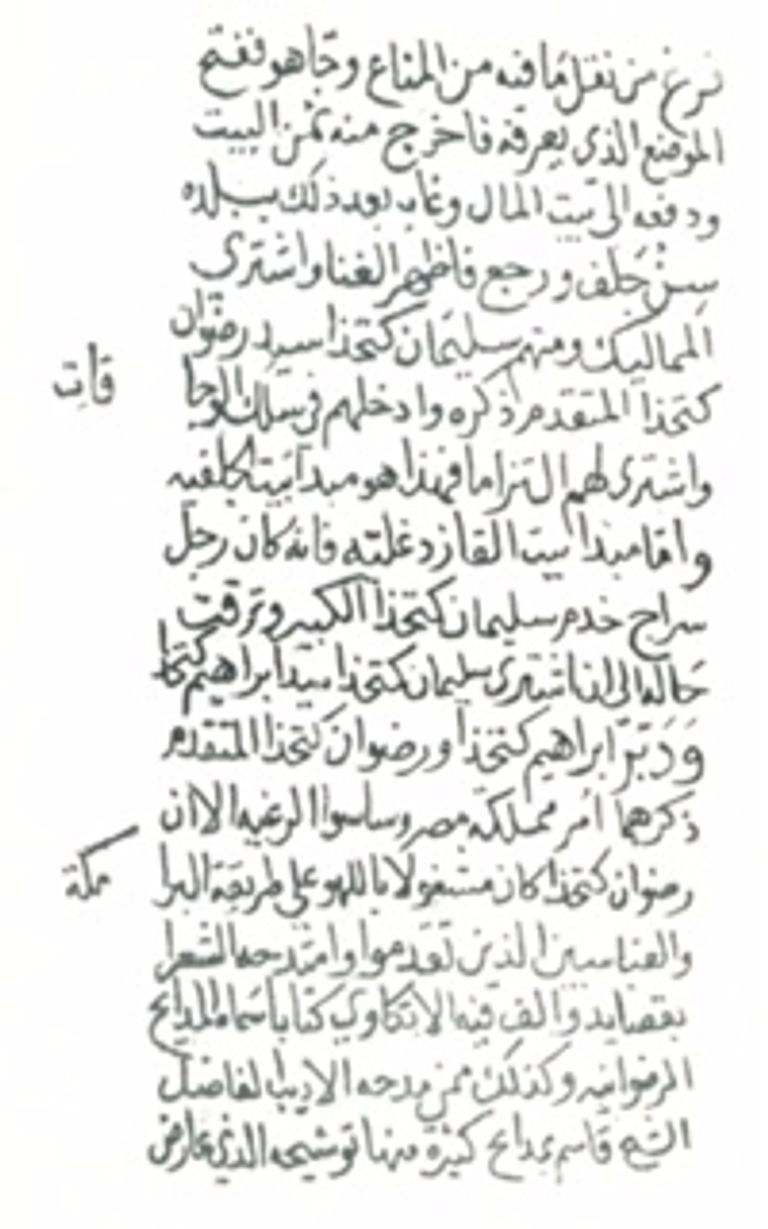 فرغ من نقل ما فيه من المتاع وجا هو ففتح
الموضع الذى يعرفه فاخرج منه ثمن البيت
ودفعه الى بيت المال وغاب بعد ذلك ببلده
سنق خلف ورجع فاظهر الغنا واشترى
المماليك ومنهم سليمان كتخذا سيد رضوان
كتخذا المتقدم ذكره وادخلهم فى سلك الوجا
قات
واشترى لهم التزاما فهذا هو مبدا بيت الجلفيه
واما مبدا بيت القازدغلته فانه كان رجل
سراج خدم سليمان كتخذا الكبير وترقت
حاله الى ان اشترى سليمان كتخذا سيد ابراهيم كتخدا
وَدَبّرَ ابراهيم كتخذا ورضوان كتخذا المتقدم
ذكرهما امر مملكة مصر وساسوا الرعيه الا ان
رضوان كتخذا كان مشغولا باللهو على طريقة البرا
مكة
والعباسين الذين تقدموا وامتدحه الشعرا
بقصايد والف فيه الادكاوي كتابا سماه المدايح
الرضوانيه وكذلك ممن مدحه الاديب الفاضل
الشيخ قاسم بمدايح كثيرة منها توشيحه الذي عارض